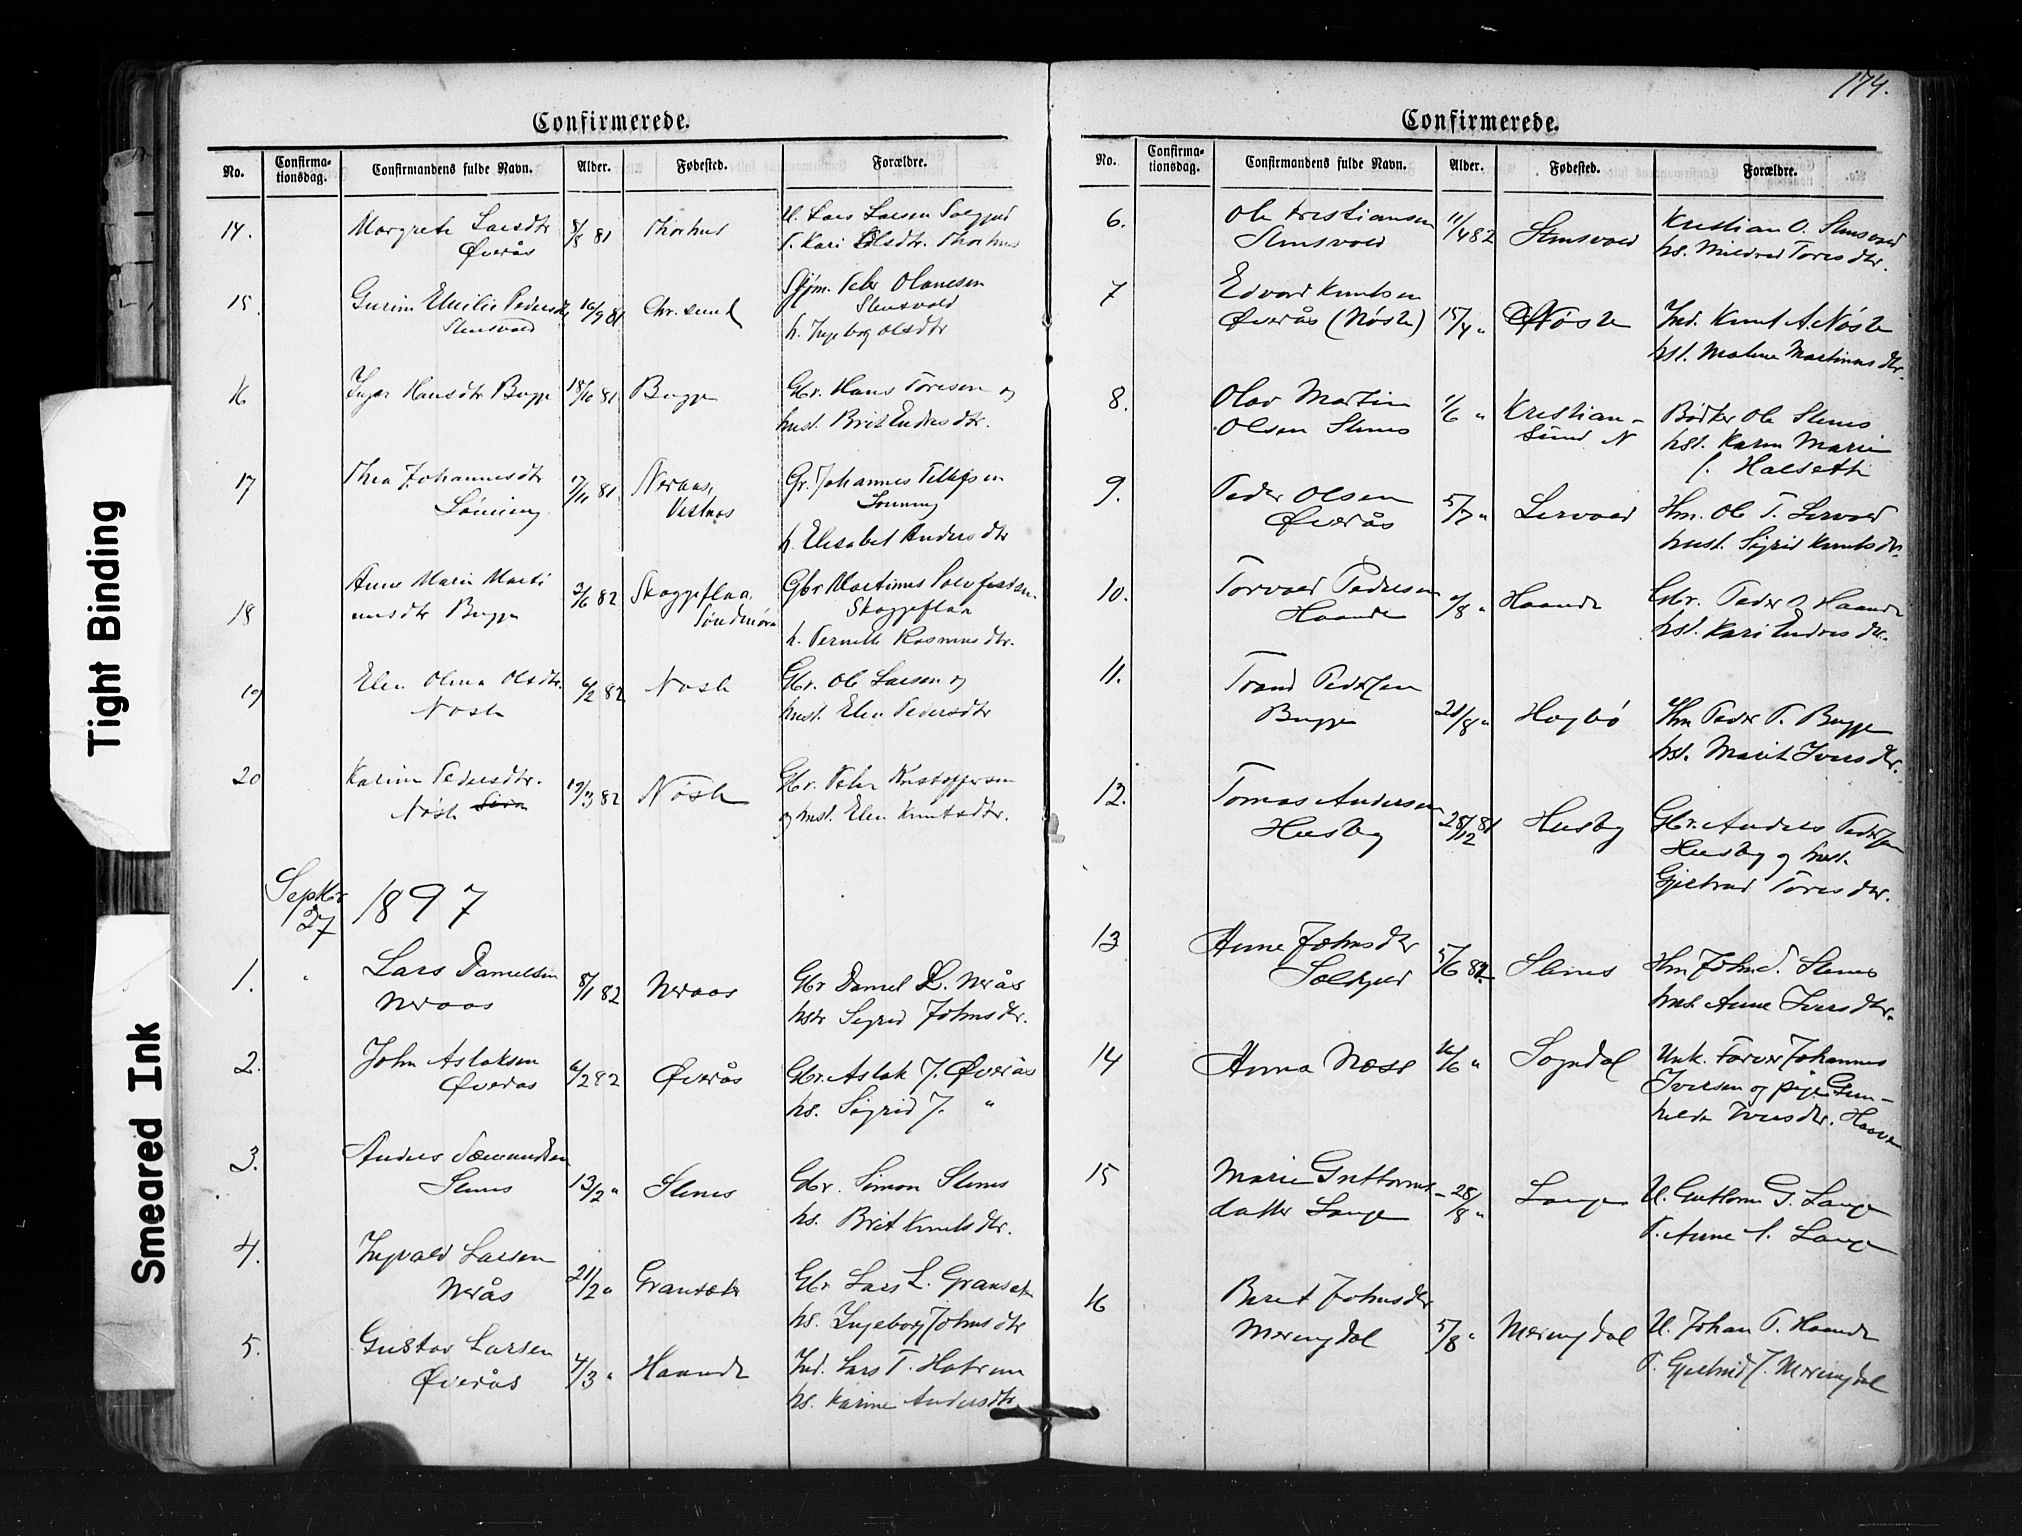 174.
Confirmerede.
No. Confirma-tionsdag. Confirmandens fulde Navn. Alder. Fødested. Forældre.
14. Margrete Larsdtr 8/8 81 Thorhus U. Lars Larsen Solgjud
Øverås P. Kari Olsdtr. Thorhus
15. Gurine Emilie Pedersdtr 16/9 81 Chr.sund Gjm. Peder Olausen
Stensvold Stensvold
h. Ingebog Olsdtr
16 Inger Hansdtr Bugge 18/10 81 Bugge Gbr. Hans Toresen og
hust. Brit Endresdtr.
17 Thea Johannesdtr 17/11 81 Neraas, Gr. Johannes
Vestnes
h. Elisabet Andersdtr
18 Anne Marie Marti 2/6 82 Skoggeflaa, Gbr Martinus
nusdtr Bugge Søndmøre Skoggeflaa
h. Pernelle Rasmusdtr.
19 Elen Olina Olsdtr. 6/2 82 Nøste Gbr. Ole Larsen og
Nøste hust. Elen Pedersdtr
20 Karine Pedersdtr. 19/3 82 Nøste Gbr. Peder Kristoffersen
Nøste og hust. Elen Knutsdtr.
Septbr 1897
27
1. " Lars Danielsen 8/1 82 Neraas Gbr Daniel L. Nerås
Neraas hstr Sigrid Johnsdtr.
2. John Aslaksen 6/2 82 Øverås Gbr. Aslak J. Øverås
Øveraas hs. Sigrid J. "
3. Anders 13/2 " Stenes Gbr. Simon Stenes
Stenes hs. Brit Knutsdtr.
4. Ingvald Larsen 21/2 " Gransæter Gbr Lars L. Gransæter
Nerås hs. Ingeborg Johnsdtr
5. Gustav Larsen 4/3 " Haande Ind. Lars T. Hatrem
Øverås hs. Karine Andersdtr
Confirmerede.
No. Confirma-tionsdag. Confirmandens fulde Navn. Alder. Fødested. Forældre.
6. Ole Kristiansen 11/4 82 Stensvold Kristian O. Stensvold
Stensvold hs. Mildrid Toresdtr.
7 Edvard Knutsen
Øverås (Nøste) 15/4 " Nøste Ind. Knut A. Nøste
hst. Malene Martinusdtr.
8. Olav Martin 1/6 " Kristian- Bødker Ole Stenes
Olsen Stenes sund N hst. Karen Marie
f. Halseth
9. Peder Olsen 5/7 " Lervold Hm. Ole T. Lervold
Øverås hust. Sigrid Knutsdtr.
10. Torvald Pedersen /8 " Haande Gbr. Peder O Haande
Haande hst. Kari Endresdtr.
11. Trond Pedersen
Bugge 21/8 " Hogbø Hm Peder P. Bugge
hst. Marit Iversdtr.
12. Tomas Andersen
Husby 28/12 81 Husby Gbr. Anders Pedersen
Husby og hust.
Gjertrud Toresdtr.
13 Anne Johnsdtr 5/6 82 Stenes Hm John S. Stenes
Solgjud hust. Anne Iversdtr.
14 Anna Næss 16/6 " Sogndal Unk. Farver Johannes
Iversen og pige Gun-
hilde Iversdtr. Haave
15 Marie Guttorms- 28/8 " Lange U. Guttorm G. Lange
datter Lange P. Anne A. Lange
16 Beret Johnsdtr
Meringdal 5/8 " Meringdal U. Johan P. Haande
P. Gjertrud J. Meringdal
Tight Binding
Smeared Ink